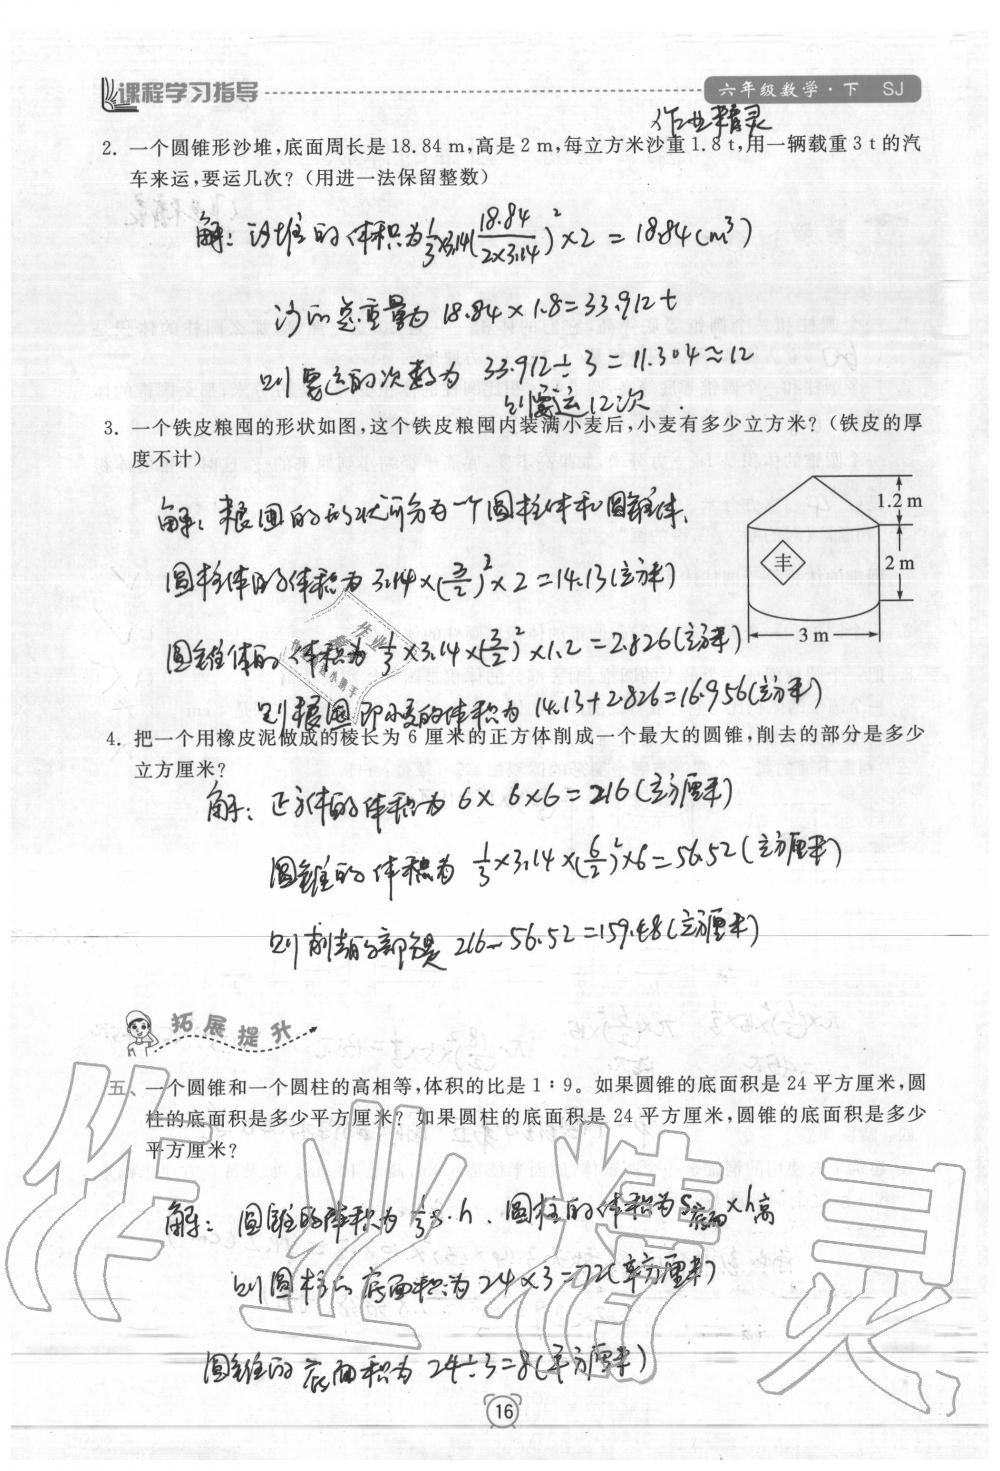 课程学习指导
六年级数学·下 SJ
作业精灵
2. 一个圆锥形沙堆,底面周长是18.84 m,高是2 m,每立方米沙重1.8 t,用一辆载重3 t的汽
车来运,要运几次?(用进一法保留整数)
解:沙堆的体积为1/3×3.14(18.84/2×3.14)²×2=18.84(m³)
沙的总重量为 18.84×1.8=33.912t
则要运的次数为 33.912÷3=11.304≈12
则要运12次.
3. 一个铁皮粮囤的形状如图,这个铁皮粮囤内装满小麦后,小麦有多少立方米?(铁皮的厚
度不计)
1.2 m
丰
2 m
3 m
解:粮囤的形状可分为一个圆柱体和圆锥体,
圆柱体的体积为 3.14×(3/2)²×2=14.13(立方米)
圆锥体的体积为 1/3×3.14×(3/2)²×1.2=2.826(立方米)
则粮囤即小麦的体积为 14.13+2.826=16.956(立方米)
4. 把一个用橡皮泥做成的棱长为6厘米的正方体削成一个最大的圆锥,削去的部分是多少
立方厘米?
解:正方体的体积为 6×6×6=216(立方厘米)
圆锥的体积为 1/3×3.14×(6/2)²×6=56.52(立方厘米)
则削去的部分是 216-56.52=159.48(立方厘米)
拓展提升
五、一个圆锥和一个圆柱的高相等,体积的比是1∶9。如果圆锥的底面积是24平方厘米,圆
柱的底面积是多少平方厘米?如果圆柱的底面积是24平方厘米,圆锥的底面积是多少
平方厘米?
解:圆锥的体积为1/3s·h、圆柱的体积为S底面×h高
则圆柱的底面积为24×3=72(平方厘米)
圆锥的底面积为 24÷3=8(平方厘米)
16
作业精灵